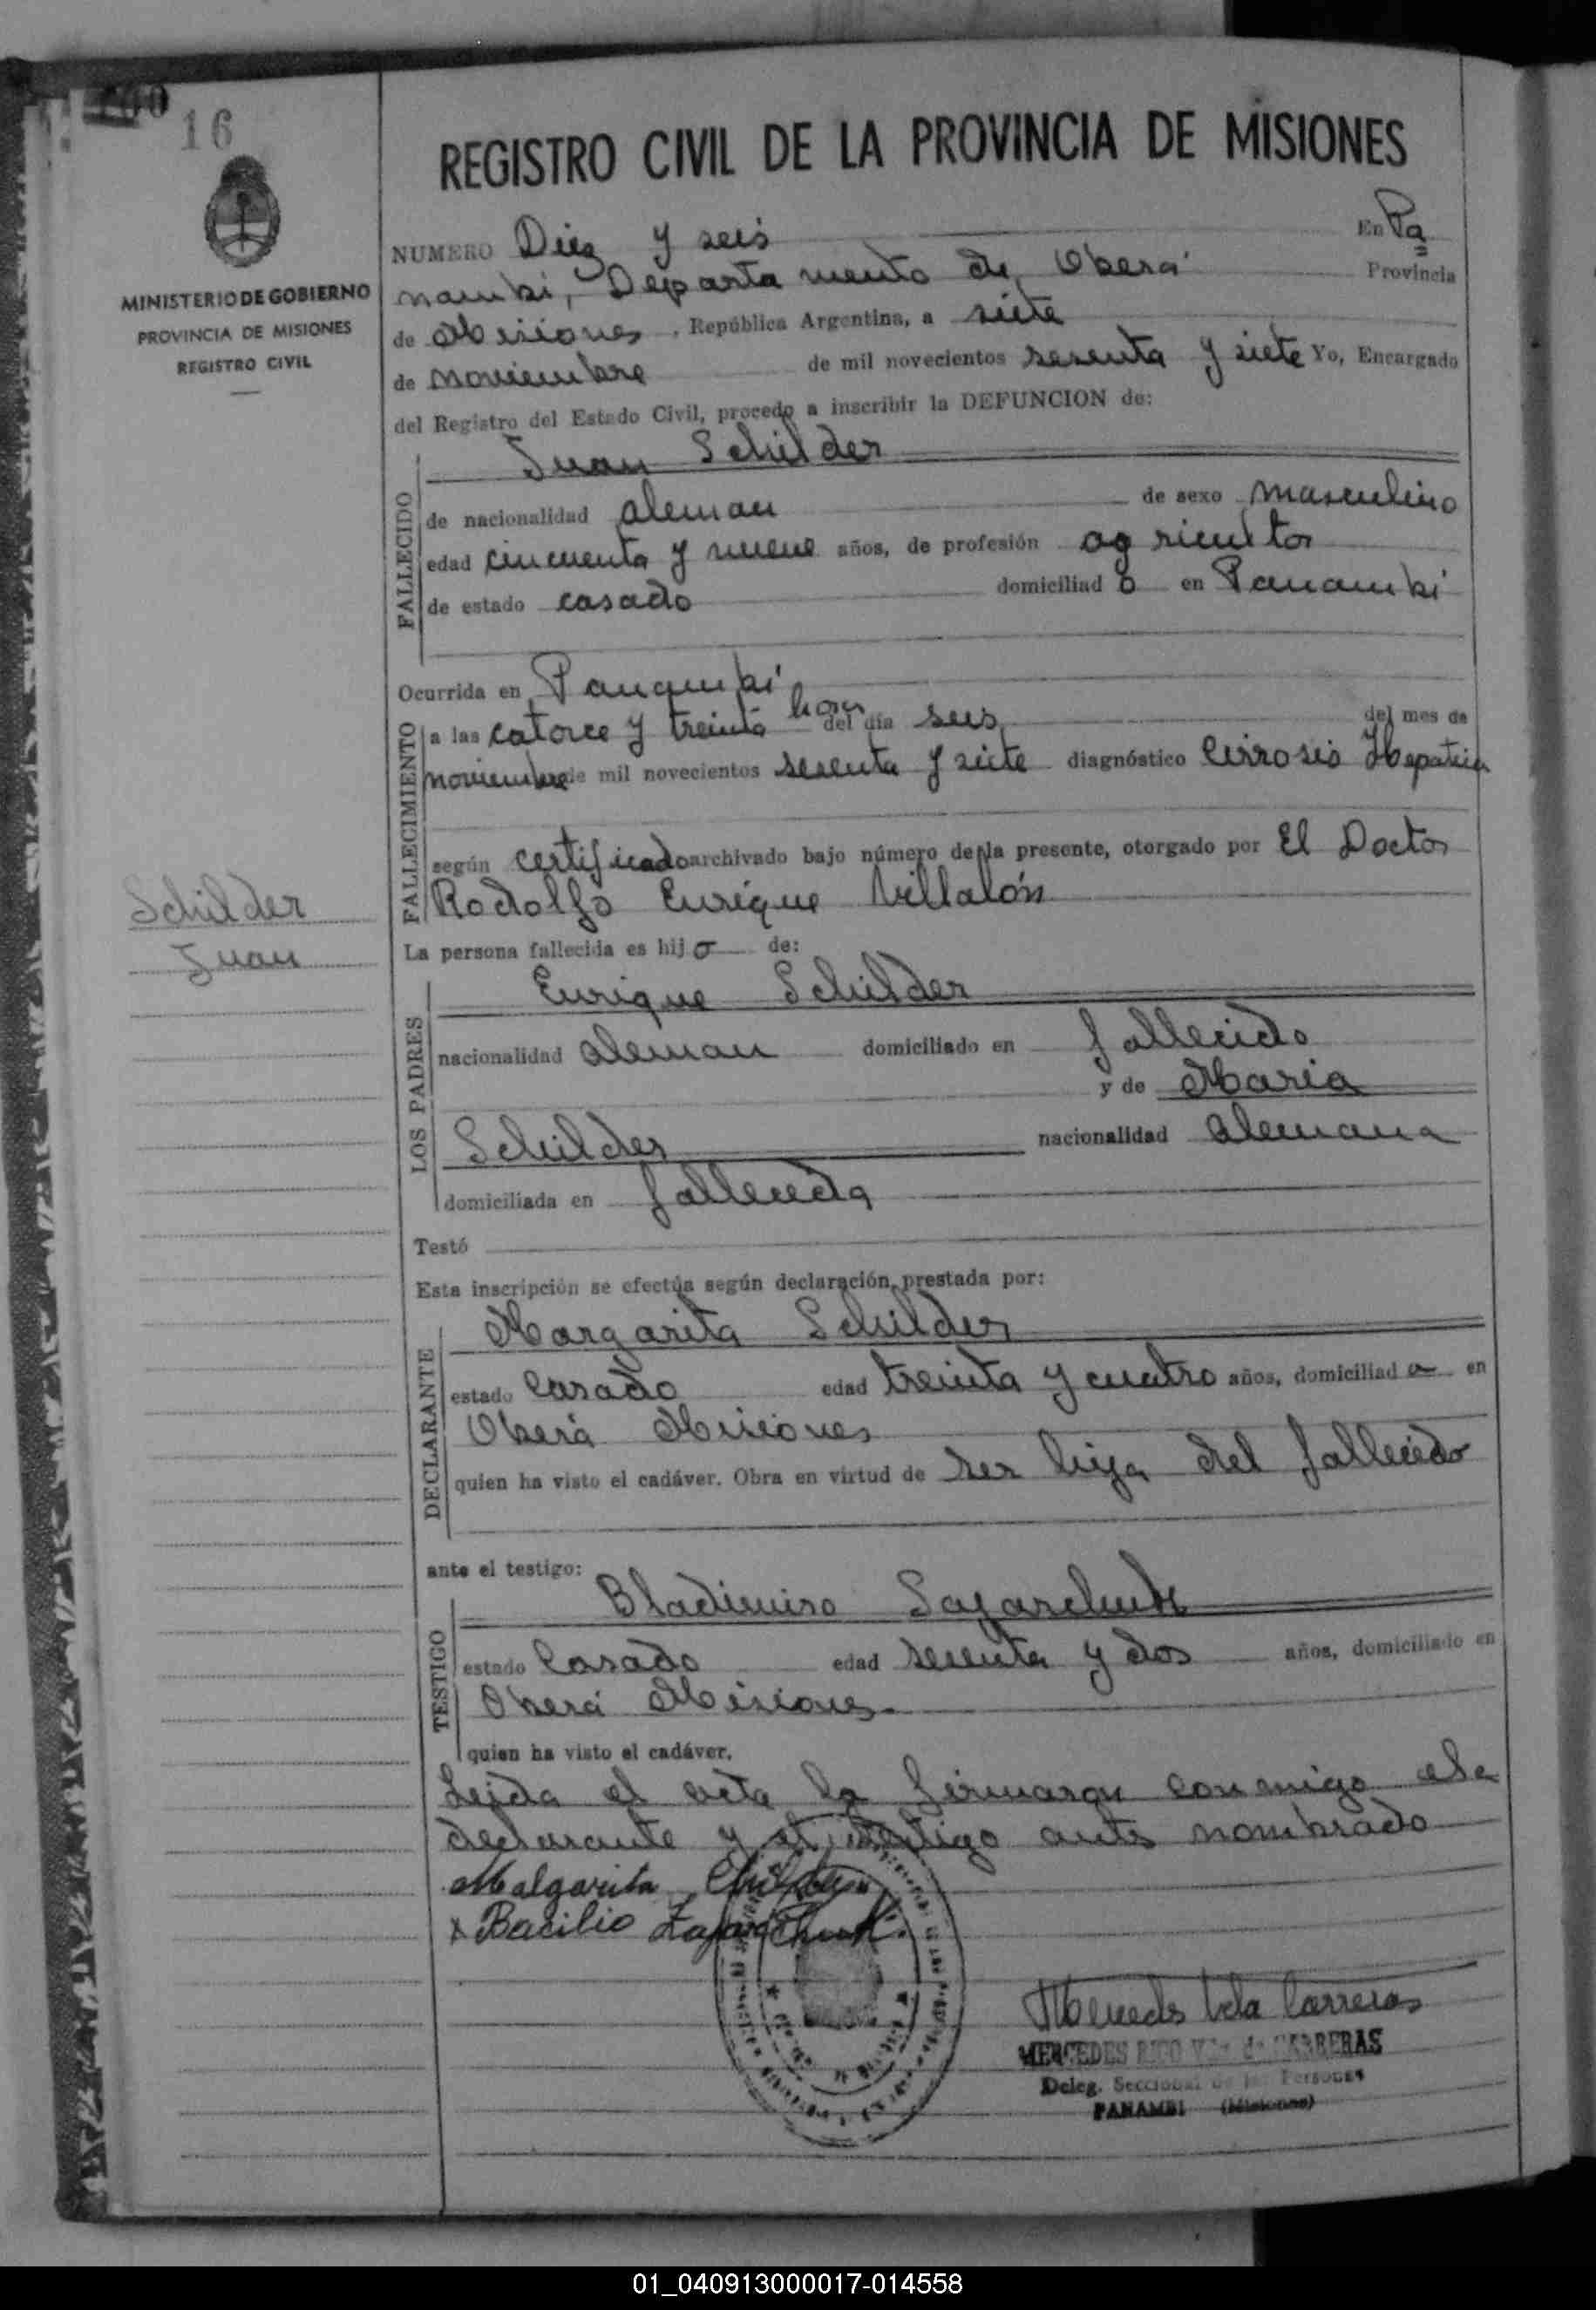 16
MINISTERIO DE GOBIERNO
PROVINCIA DE MISIONES
REGISTRO CIVIL
REGISTRO CIVIL DE LA PROVINCIA DE MISIONES
NUMERO Diez y seis En Pa
nambi, Departamento de Oberá Provincia
de Misiones, República Argentina, a siete
de noviembre de mil novecientos sesenta y siete Yo, Encargado
del Registro del Estado Civil, procedo a inscribir la DEFUNCION de:
Juan Schilder
FALLECIDO
de nacionalidad aleman de sexo masculino
edad cincuenta y nueve años, de profesión agricultor
de estado casado domiciliado en Panambi
Ocurrida en Panambi
FALLECIMIENTO
a las catorce y treinta horas del día seis del mes de
noviembre de mil novecientos sesenta y siete diagnóstico Cirrosis Hepatica
según certificado archivado bajo número de la presente, otorgado por El Doctor
Rodolfo Enrique Villalón
Schilder
Juan
La persona fallecida es hijo de:
Enrique Schilder
LOS PADRES
nacionalidad aleman domiciliado en fallecido
y de Maria
Schilder nacionalidad alemana
domiciliada en fallecida
Testó
Esta inscripción se efectúa según declaración prestada por:
Margarita Schilder
DECLARANTE
estado Casado edad treinta y cuatro años, domiciliada en
Oberá Misiones
quien ha visto el cadáver. Obra en virtud de ser hija del fallecido
ante el testigo:
Bladimiro Sajarchuk
TESTIGO
estado Casado edad sesenta y dos años, domiciliado en
Oberá Misiones
quien ha visto el cadáver.
Leida el acta la firmaran conmigo
declarante y el testigo antes nombrado
Malgarita
x Bacilio Zajarchuk
Mercedes Vda Carreras
MERCEDES RICO Vda. de CARRERAS
Deleg. Seccional de las Personas
PANAMBI (Misiones)
01_040913000017-014558